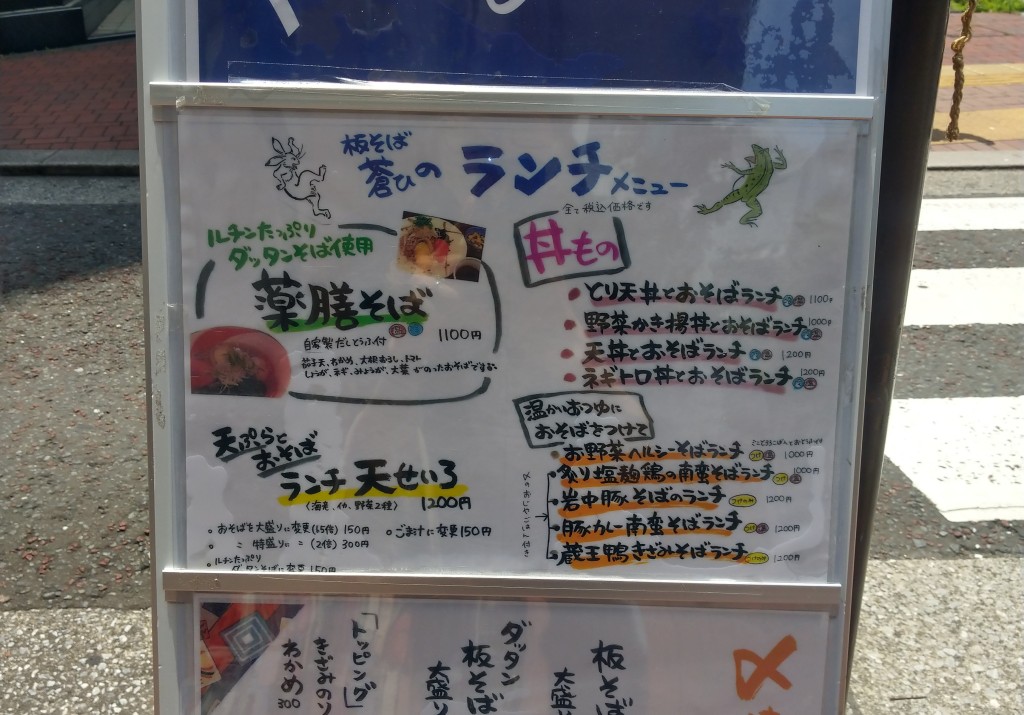 板そば
蒼ひの ランチメニュー
全て税込価格です
ルチンたっぷり
ダッタンそば使用
薬膳そば
自家製だしとうふ付 温 冷 1100円
茄子天、わかめ、大根おろし、トマト
しょうが、ネギ、みょうが、大葉 がのったおそばですよ
天ぷらと
おそば
ランチ 天せいろ
(海老、イカ、野菜2種) 1200円
おそばを大盛りに変更(1.5倍) 150円
〃 特盛りに 〃 (2倍) 300円
ルチンたっぷり
ダッタンそばに変更 150円
ごまだれに変更150円
丼もの
とり天丼とおそばランチ 冷 温 1100円
野菜かき揚丼とおそばランチ 冷 温 1000円
天丼とおそばランチ 冷 温 1200円
ネギトロ丼とおそばランチ 冷 温 1200円
温かいおつゆに
おそばをつけて
お野菜ヘルシーそばランチ つけ 温 1000円
炙り塩麹鶏の南蛮そばランチ つけ 温 1000円
岩中豚そばのランチ つけのみ 1200円
豚カレー南蛮そばランチ つけ 温 1200円
蔵王鴨きざみそばランチ つけのみ 1200円
〆のおじやごはん付き
〆
板そば
大盛り
ダッタン
板そば
大盛り
「トッピング」
きざみのり
わかめ 300